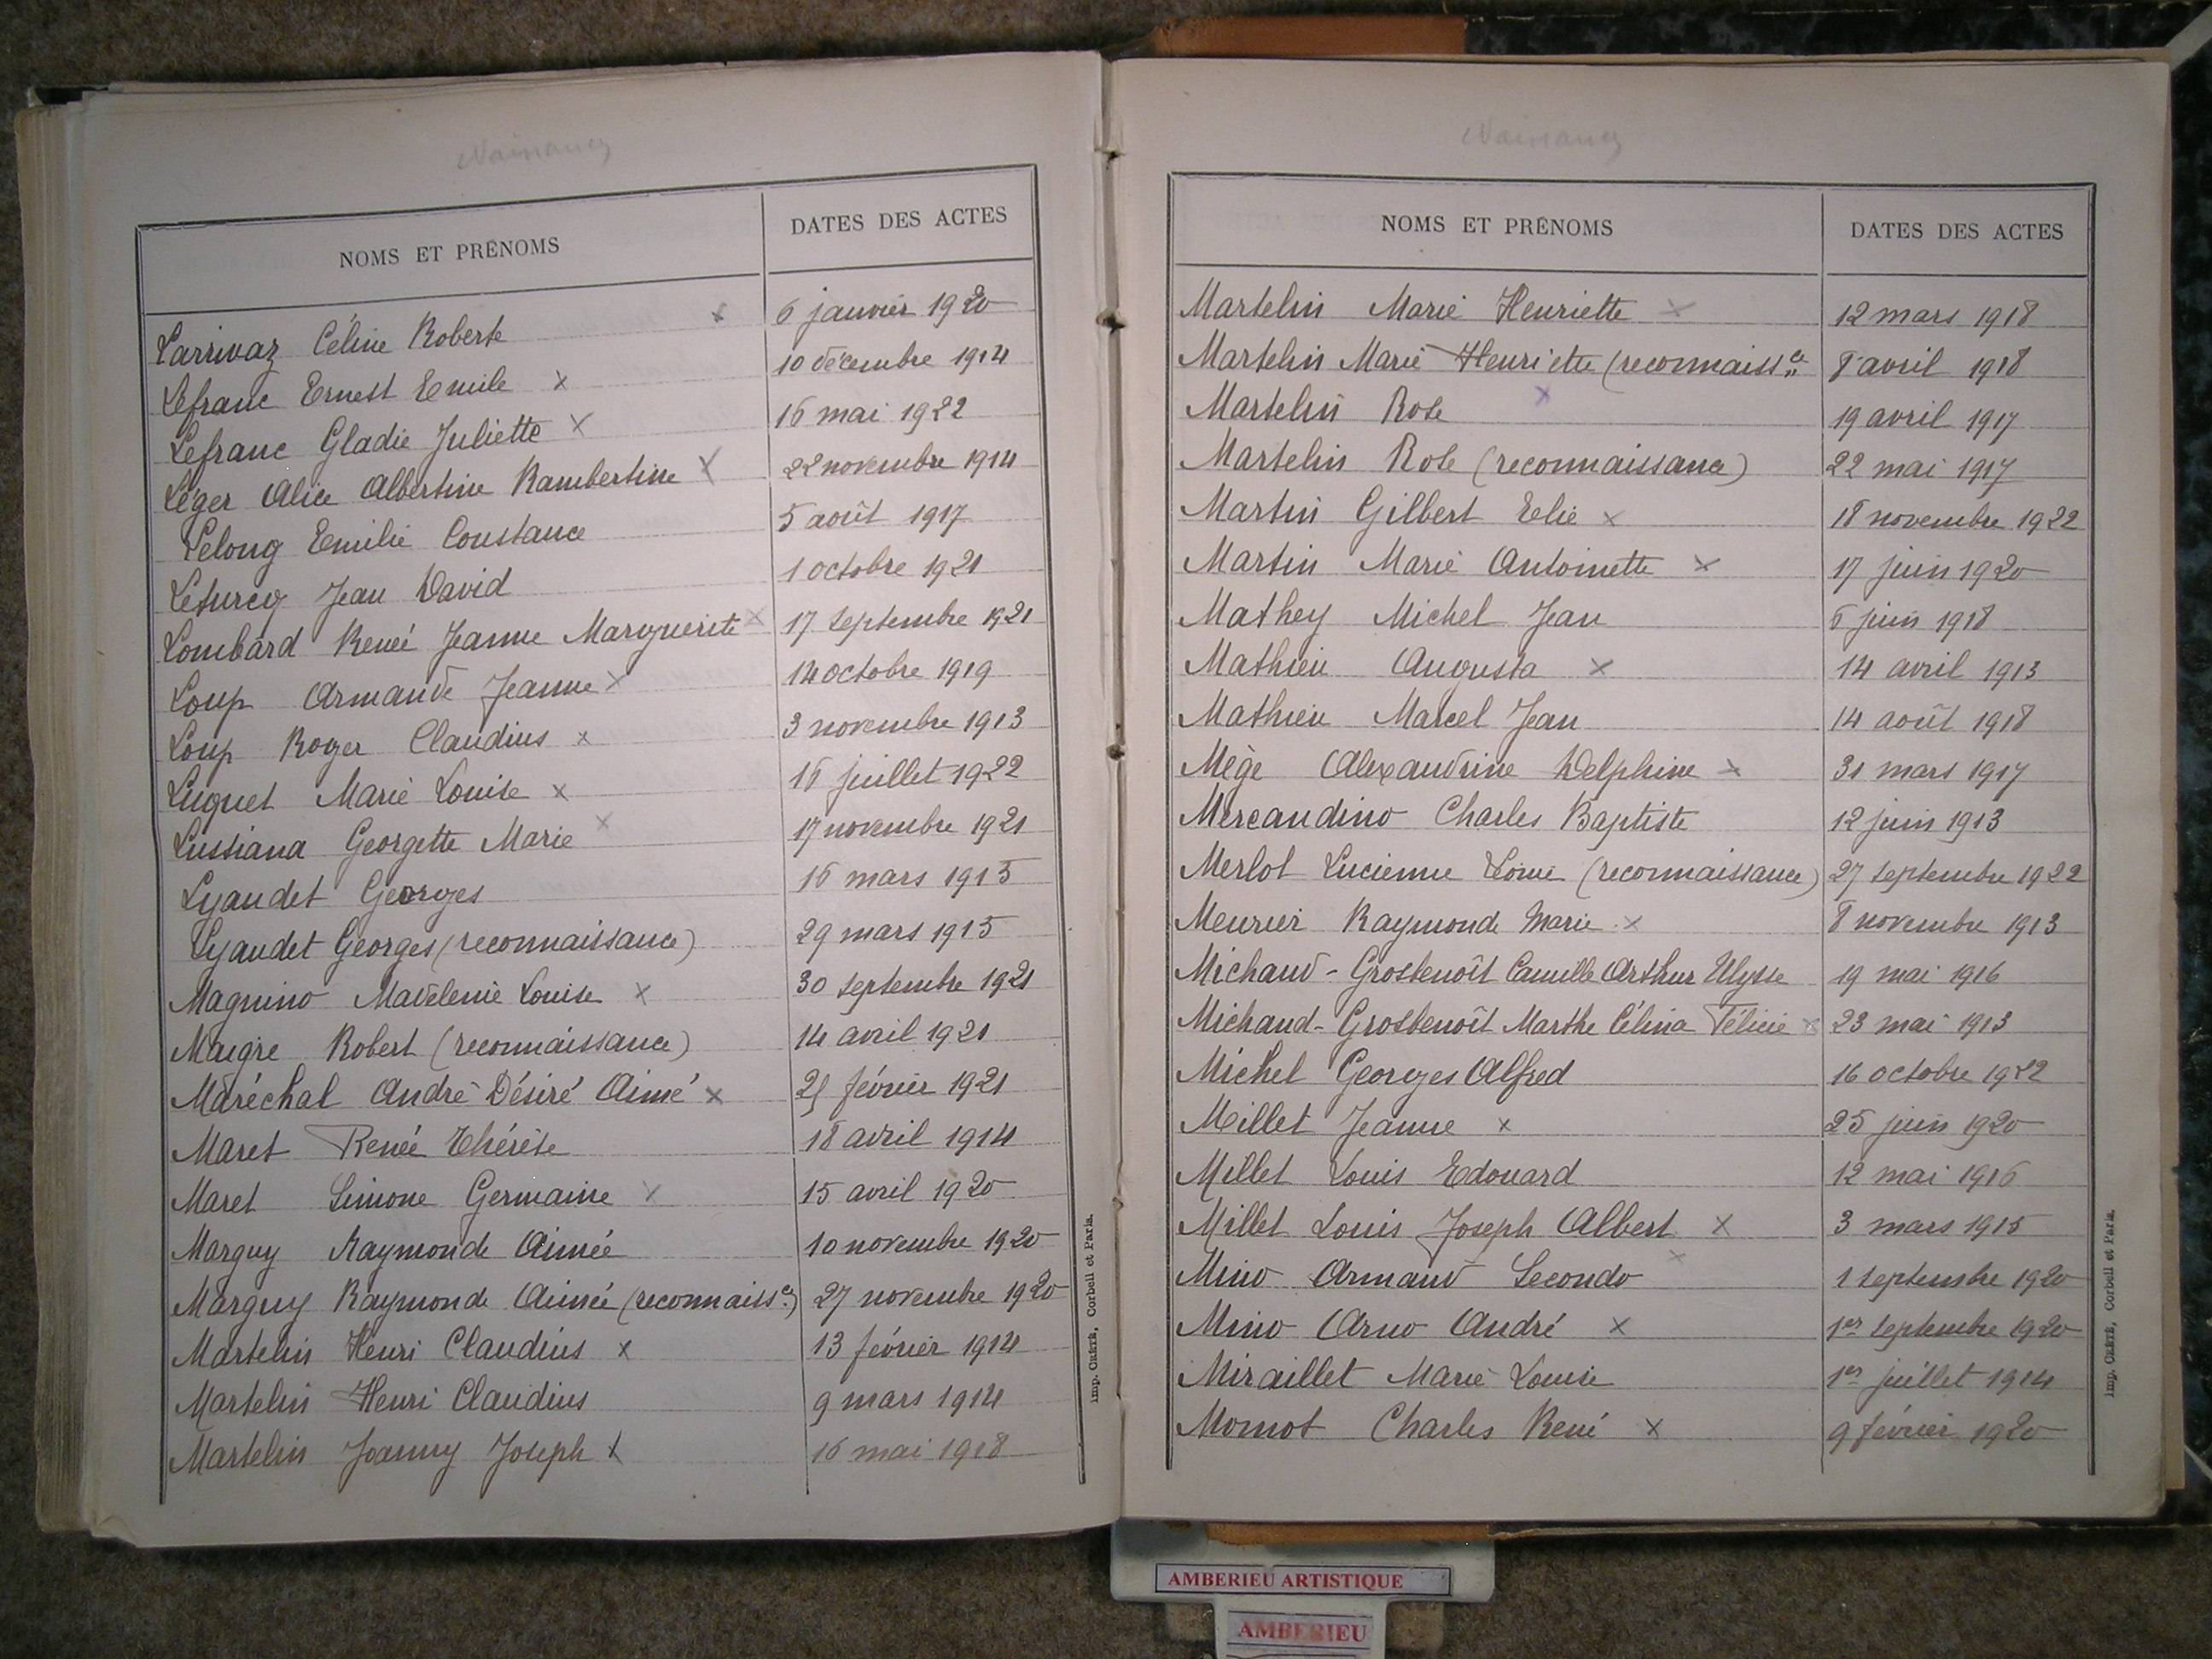 Naissances
NOMS ET PRÉNOMS DATES DES ACTES
Larrivaz Céline Roberte x 6 janvier 1920
Lefranc Ernest Emile x 10 décembre 1914
Lefranc Gladie Juliette x 16 mai 1922
Léger Alice Albertine Rambertine x 22 novembre 1914
Lelong Emilie Constance 5 août 1917
Leturcq Jean David 1 octobre 1921
Lombard Renée Jeanne Marguerite x 17 septembre 1921
Loup Armande Jeanne x 14 octobre 1919
Loup Roger Claudius x 3 novembre 1913
Luquet Marie Louise x 16 juillet 1922
Lussiana Georgette Marie x 17 novembre 1921
Lyaudet Georges 16 mars 1915
Lyaudet Georges (reconnaissance) 29 mars 1915
Magnino Madeleine Louise x 30 septembre 1921
Maigre Robert (reconnaissance) 14 avril 1921
Maréchal André Désiré Aimé x février 1921
Maret Renée Thérèse 18 avril 1914
Maret Simone Germaine x 15 avril 1920
Marguy Raymonde Aimée 10 novembre 1920
Marguy Raymonde Aimée (reconnaissce) 27 novembre 1920
Martelin Henri Claudius x 13 février 1914
Martelin Henri Claudius 9 mars 1914
Martelin Joanny Joseph x 16 mai 1918
Imp. CRÉTÉ, Corbeil et Paris.
Naissances
NOMS ET PRÉNOMS DATES DES ACTES
Martelin Marie Henriette x 12 mars 1918
Martelin Marie Henriette (reconnaissce 8 avril 1918
Martelin Rose x 19 avril 1917
Martelin Rose (reconnaissance) 22 mai 1917
Martin Gilbert Elie x 18 novembre 1922
Martin Marie Antoinette x 17 juin 1920
Mathey Michel Jean 6 juin 1918
Mathieu Augusta x 14 avril 1913
Mathieu Marcel Jean 14 août 1918
Mège Alexandrine Delphine x 31 mars 1917
Mercandino Charles Baptiste 12 juin 1913
Merlot Lucienne (reconnaissance) 27 septembre 1922
Meurier Raymonde Marie x 8 novembre 1913
Michaud-Grosbenoît Camille Arthur Ulysse 19 mai 1916
Michaud-Grosbenoît Marthe Célina Félicie x 23 mai 1913
Michel Georges Alfred 16 octobre 1922
Millet Jeanne x 25 juin 1920
Millet Louis Edouard 12 mai 1916
Millet Louis Joseph Albert x 3 mars 1915
Mino Armand Secondo x 1 septembre 1920
Mino Arno André x 1er septembre 1920
Miraillet Marie Louise 1er juillet 1914
Momot Charles René x 9 février 1920
Imp. CRÉTÉ, Corbeil et Paris.
AMBERIEU ARTISTIQUE
AMBERIEU